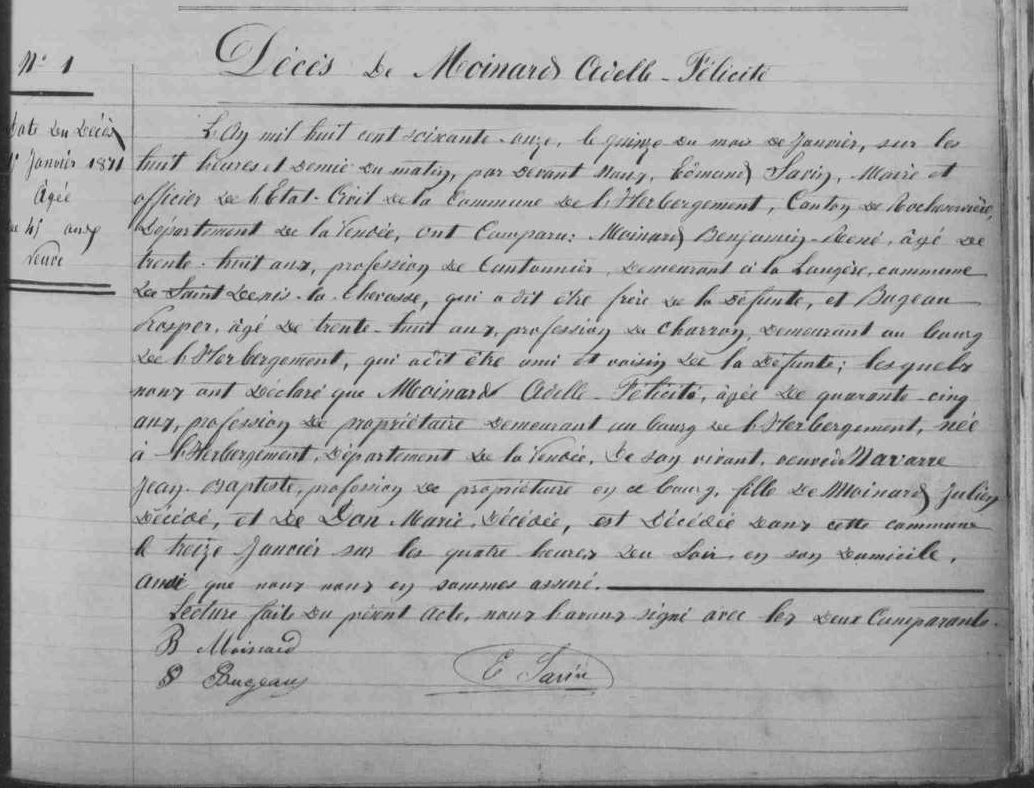 N° 1
Décès de Moinard Adelle-Félicité
Date du Décès
Janvier 1871
Agée
45 ans
Veuve
L'An mil huit cent soixante-onze, le quinze du mois de Janvier, sur les
huit heures et Demie du matin, par devant Nous, Edmond Savin, Maire et
officier de l'Etat-Civil de la Commune de l'Herbergement, Canton de Rocheservière,
Département de la Vendée, ont Comparu: Moinard Benjamin-René, âgé de
trente-huit ans, profession de Cantonnier, Demeurant à la Laugère, commune
de Saint Denis-la-Chevasse, qui a dit être frère de la défunte, et Bugeau
Prosper, âgé de trente-huit ans, profession de Charron, Demeurant au bourg
de l'Herbergement, qui a dit être ami et voisin de la Défunte; lesquels
nous ont Déclaré que Moinard Adelle-Félicité, âgée de quarante-cinq
ans, profession de propriétaire Demeurant au bourg de l'Herbergement, née
à l'Herbergement, Département de la Vendée, De son vivant, veuve de Navarre
Jean-Baptiste, profession de propriétaire en ce bourg, fille de Moinard Julien
Décédé, et de Don Marie, Décédée, est Décédée dans cette commune
le treize Janvier sur les quatre heures du Soir en son Domicile,
ainsi que nous nous en sommes assuré.
Lecture faite du présent Acte, nous l'avons signé avec les Deux Comparants.
B Moinard
P Bugeau
E Savin